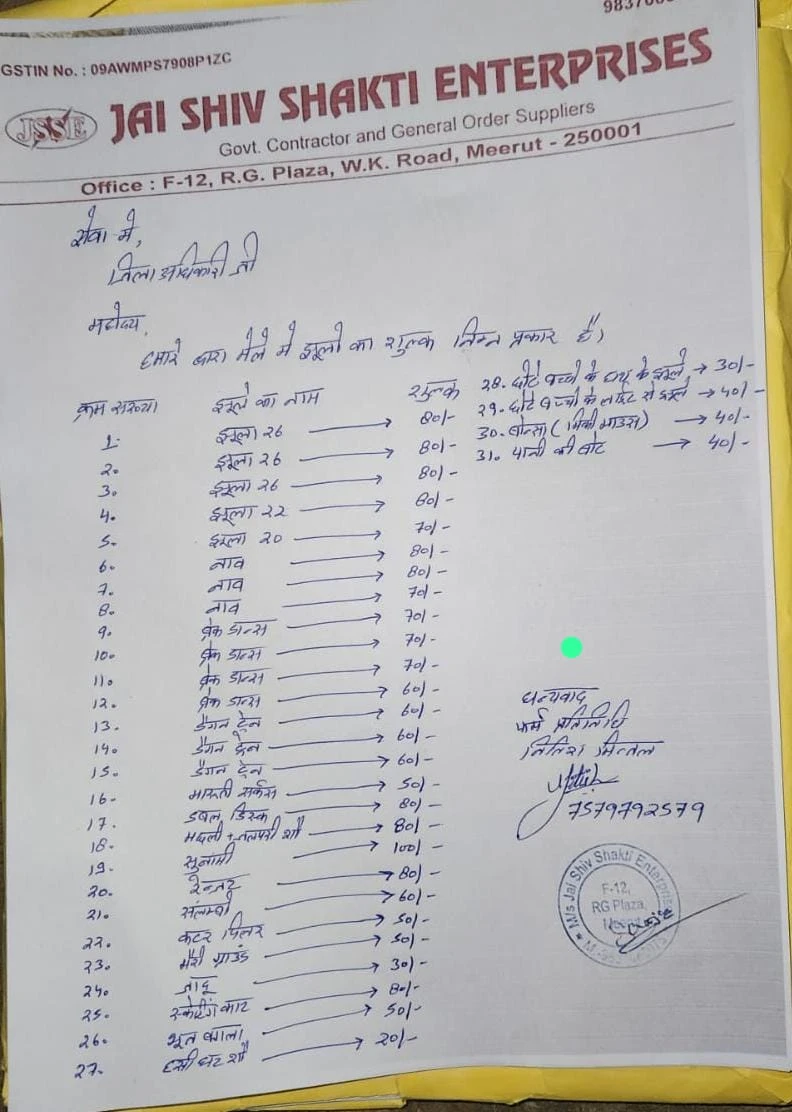 983706
GSTIN No. : 09AWMPS7908P1ZC
JSSE
JAI SHIV SHAKTI ENTERPRISES
Govt. Contractor and General Order Suppliers
Office : F-12, R.G. Plaza, W.K. Road, Meerut - 250001
सेवा में,
जिला अधिकारी जी
महोदय,
हमारे द्वारा मेले मे झूलो का शुल्क निम्न प्रकार है।
क्रम संख्या झूले का नाम शुल्क
1. झूला 26 → 80/-
2. झूला 26 → 80/-
3. झूला 26 → 80/-
4. झूला 22 → 80/-
5. झूला 20 → 70/-
6. नाव → 80/-
7. नाव → 80/-
8. नाव → 70/-
9. ब्रेक डान्स → 70/-
10. ब्रेक डान्स → 70/-
11. ब्रेक डान्स → 70/-
12. ब्रेक डान्स → 60/-
13. ड्रैगन ट्रेन → 60/-
14. ड्रैगन ट्रेन → 60/-
15. ड्रैगन ट्रेन → 60/-
16. मारुती सर्कस → 50/-
17. डबल डिस्क → 80/-
18. मछली + जलपरी शौ → 80/-
19. सुनामी → 100/-
20. रेन्जर → 80/-
21. सलम्बो → 60/-
22. कटर पिलर → 50/-
23. मैरी ग्राउंड → 50/-
24. जादू → 30/-
25. स्केटिंग कार → 80/-
26. भूत बंगला → 50/-
27. हसी घर शौ → 20/-
28. छोटे बच्चो के हाथ के झूले → 30/-
29. छोटे बच्चो के लाईट से झूले → 40/-
30. बोन्सी (मिकी माउस) → 40/-
31. पानी की बोट → 40/-
धन्यवाद
फर्म प्रतिनिधि
नितिश मित्तल
Nitish
7579792579
M/s Jai Shiv Shakti Enterprises
F-12,
RG Plaza,
Meerut